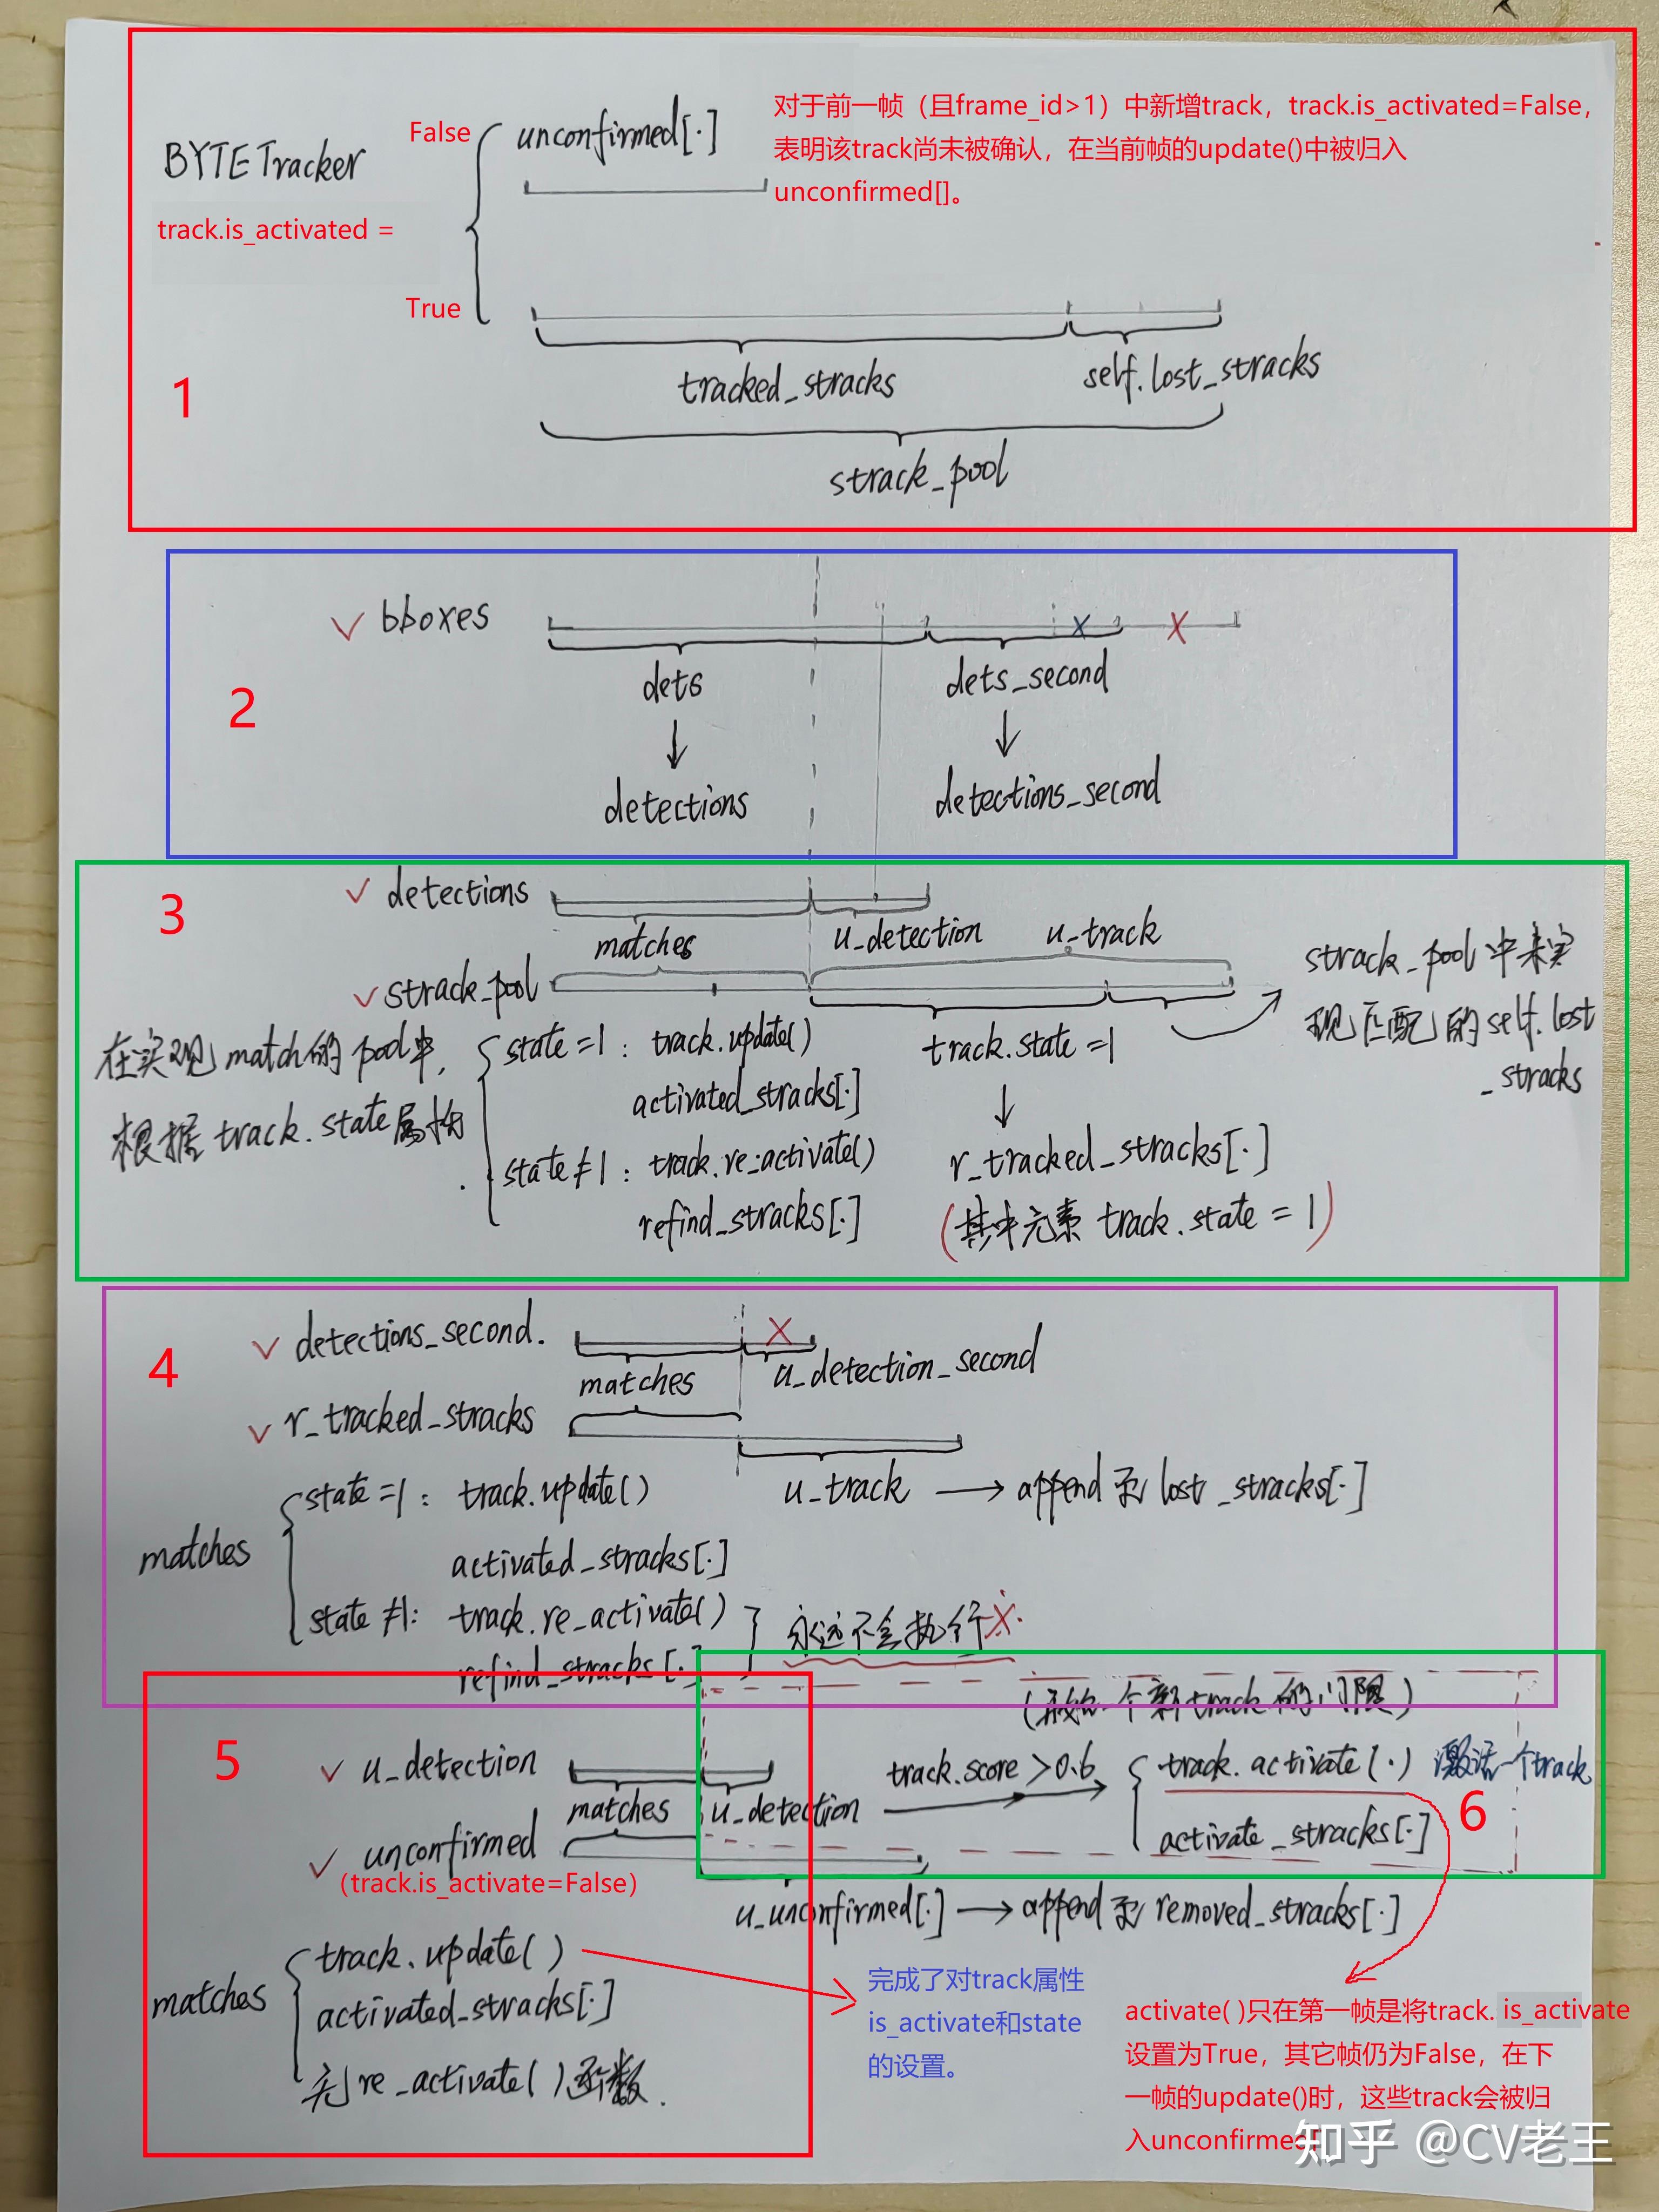 BYTETracker
track.is_activated =
False
unconfirmed[·]
对于前一帧（且frame_id>1）中新增track，track.is_activated=False，
表明该track尚未被确认，在当前帧的update()中被归入
unconfirmed[]。
True
tracked_stracks
self.lost_stracks
strack_pool
1
✓ bboxes
x
X
dets
dets_second
↓
↓
detections
detections_second
2
3
✓ detections
matches
u_detection
u_track
✓ strack_pool
strack_pool中未实
现匹配的self.lost
_stracks
在实现match的pool中,
根据track.state属性
state=1: track.update()
activated_stracks[·]
state≠1: track.re_activate()
refind_stracks[·]
track.state=1
↓
r_tracked_stracks[·]
(其中元素 track.state = 1)
4
✓ detections_second.
X
matches
u_detection_second
✓ r_tracked_stracks
u_track → append到 lost_stracks[·]
matches
state=1: track.update()
activated_stracks[·]
state≠1: track.re_activate()
refind_stracks[·]
永远不会执行X.
5
✓ u_detection
matches
u_detection
✓ unconfirmed
(track.is_activate=False)
(开始一个新track的门限)
track.score>0.6
track.activate(·) 激活一个track
activate_stracks[·]
6
u_unconfirmed[·] → append到 removed_stracks[·]
matches
track.update()
activated_stracks[·]
无re_activate()函数.
完成了对track属性
is_activate和state
的设置。
activate( )只在第一帧是将track. is_activate
设置为True，其它帧仍为False，在下
一帧的update()时，这些track会被归
入unconfirmed
知乎 @CV老王